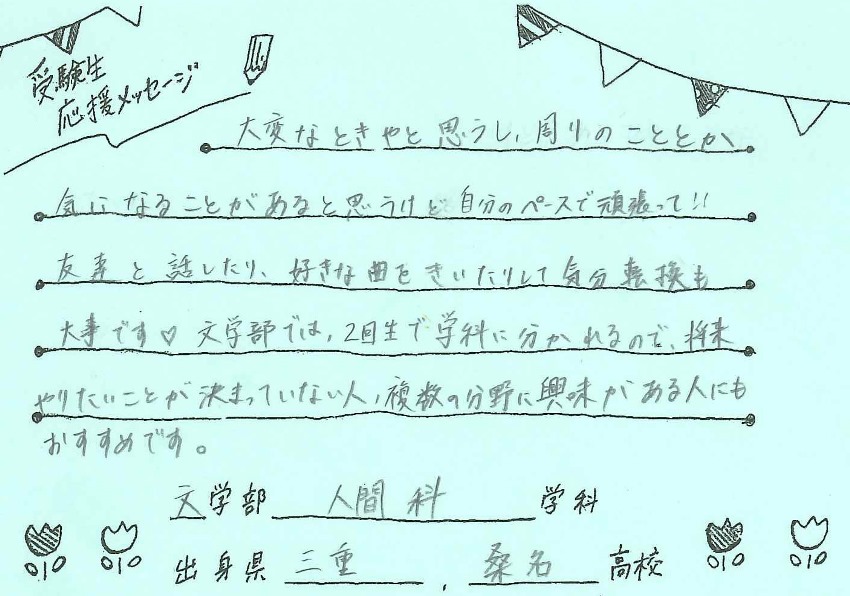 受験生
応援メッセージ
大変なときやと思うし、周りのこととか
気になることがあると思うけど自分のペースで頑張って!!
友達と話したり、好きな曲をきいたりして気分転換も
大事です♡ 文学部では、2回生で学科に分かれるので、将来
やりたいことが決まっていない人、複数の分野に興味がある人にも
おすすめです。
文学部 人間科 学科
出身県 三重 、 桑名 高校